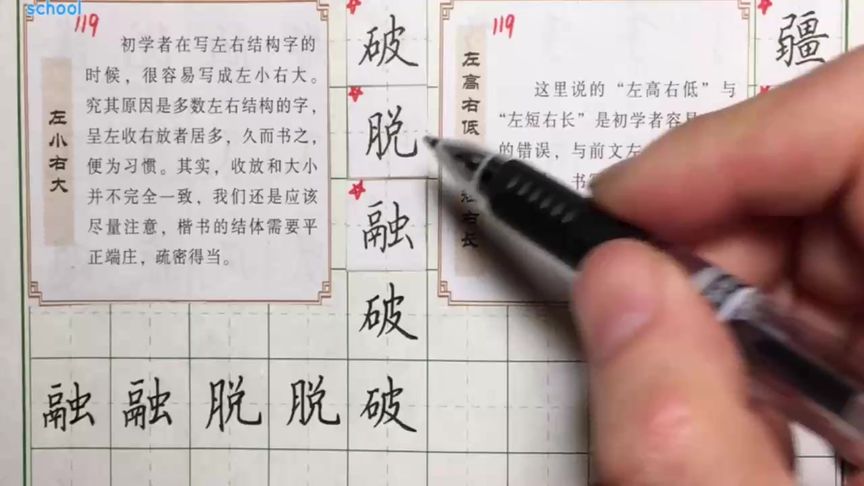 school
119
左小右大
初学者在写左右结构字的
时候，很容易写成左小右大。
究其原因是多数左右结构的字，
呈左收右放者居多，久而书之，
便为习惯。其实，收放和大小
并不完全一致，我们还是应该
尽量注意，楷书的结体需要平
正端庄，疏密得当。
破
脱
融
破
融 融 脱 脱 破
119
左高右低
右长
这里说的“左高右低”与
“左短右长”是初学者容
的错误，与前文左
书
疆